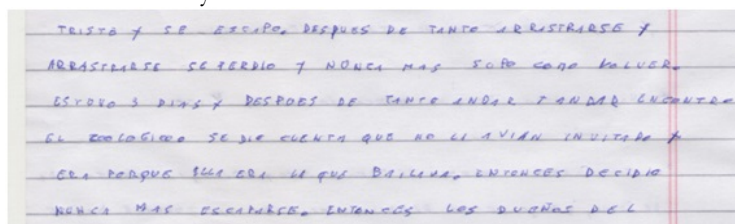 TRISTE Y SE ESCAPO. DESPUES DE TANTO ARRASTRARSE Y
ARRASTRARSE SE PERDIO Y NONCA MAS SOPO COMO VOLVER.
ESTOVO 3 DIAS Y DESPOES DE TANTO ANDAR Y ANDAR ENCONTRO
EL ZOOLOGICO SE DIO CUENTA QUE NO LE AVIAN INVITADO Y
ERA PORQUE ELLA ERA LA QUE BAILAVA. ENTONCES DECIDIO
NONCA MAS ESCAPARSE. ENTONCES LOS DUEÑOS DEL